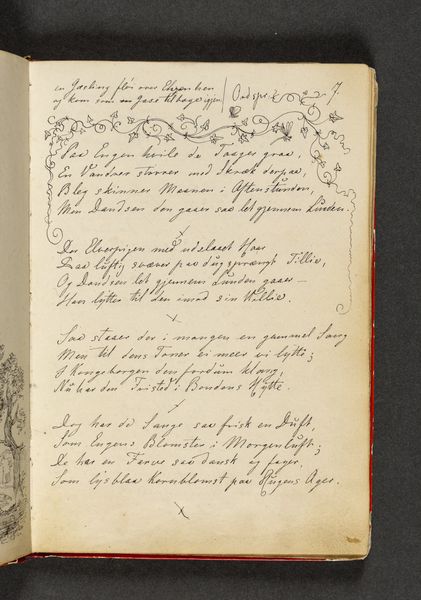 en Gæsling fløi over Ehren hen
og kom som en Gase tilbage igjen / Ordspr. 7.
Paa Engen hvile de Taager graa,
En Vandrer stirrer med Skræk derpaa,
Bleg skinner Maanen i Aftenstunden,
Men Dandsen den gaaer saa let gjennem Lunden.
x
Der Elverpigen med udslaget Haar
Saa luftig svæver paa dugsprængt Tillie,
Og Dandsen let gjennem Lunden gaaer –
Han lytter til den imod sin Willie.
x
Saa staaer der i mangen en gammel Sang
Men til dens Toner ei meer vi lytte;
I Kongeborgen den fordum klang,
Nu har den Fristed i Bondens Hytte.
x
Dog har de Sange saa frisk en Duft,
Som Engens Blomster i Morgenluft;
De har en Farve saa dansk og fager,
Som lysblaa Kornblomst paa Rugens Ager.
x